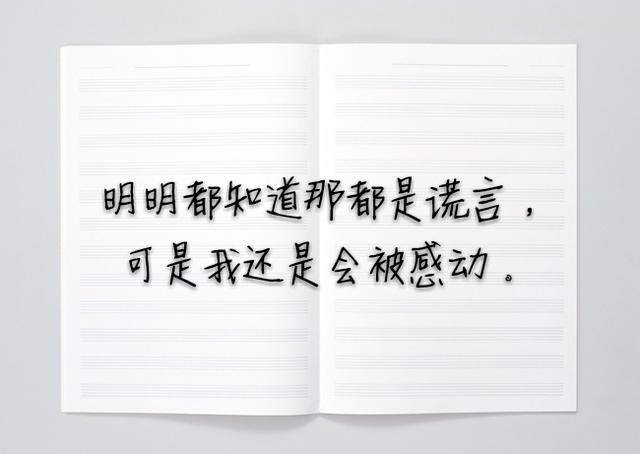 明明都知道那都是谎言，
可是我还是会被感动。